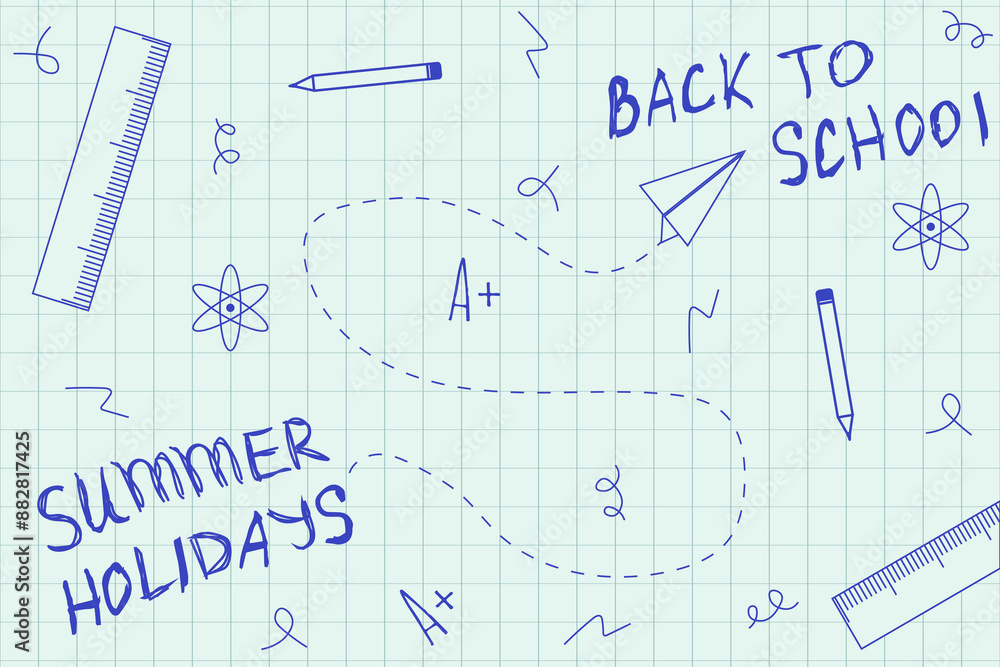 BACK TO
SCHOOL
A+
SUMMER
HOLIDAYS
A+
Adobe Stock | #882817425